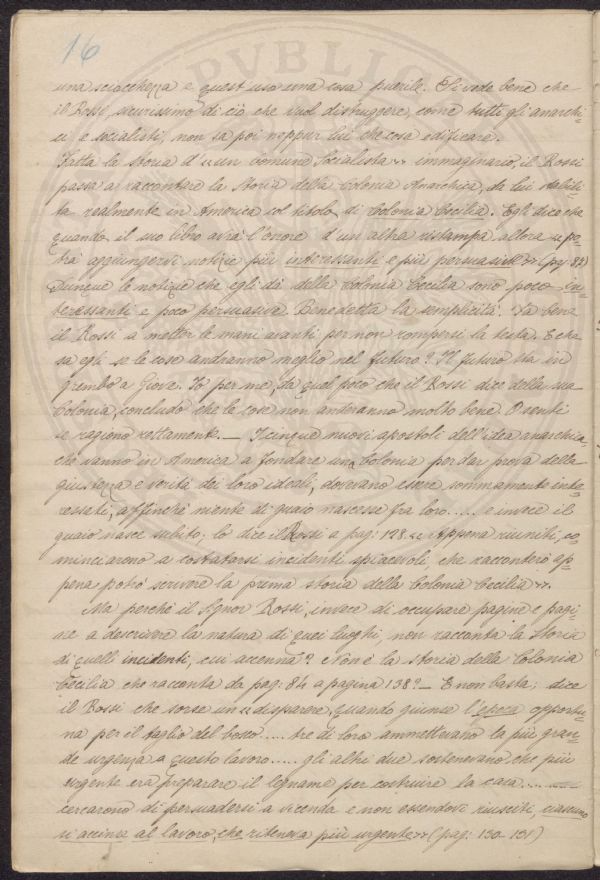 16
una sciocchezza e quest'uso una cosa puerile. Si vede bene che
il Rossi, sicurissimo di ciò che vuol distruggere, come tutti gli anarchi-
ci e socialisti, non sa poi neppur lui che cosa edificare.
Fatta la storia d'"un Comune Socialista" immaginario, il Rossi
passa a raccontare la Storia della Colonia Anarchica, da lui stabili-
ta realmente in America col titolo di Colonia Cecilia. Egli dice che
quando il suo libro avrà l'onore d'un'altra ristampa allora "po-
trà aggiungervi notizie più interessanti e più persuasive" (pag. 83)
Dunque le notizie che egli dà della Colonia Cecilia sono poco in-
teressanti e poco persuasive. Benedetta la semplicità! Fa bene
il Rossi a metter le mani avanti per non rompersi la testa. E che
sa egli se le cose andranno meglio nel futuro? Il futuro sta in
grembo a Giove. Io per me, da quel poco che il Rossi dice della sua
Colonia, concludo che le cose non anderanno molto bene. O senti
se ragiono rettamente. — I cinque nuovi apostoli dell'idea anarchica,
che vanno in America a fondare una Colonia per dar prova della
giustezza e verità dei loro ideali, dovevano essere sommamente inte-
ressati, affinchè niente di guaio nascesse fra loro.... e invece il
guaio nasce subito; lo dice il Rossi a pag: 128. "Appena riuniti, co-
minciarono a costatarsi incidenti spiacevoli, che racconterò ap-
pena potrò scrivere la prima storia della Colonia Cecilia".
Ma perchè il Signor Rossi, invece di occupare pagine e pagi-
ne a descrivere la natura di quei luoghi, non racconta la Storia
di quelli incidenti, cui accenna? e Non è la storia della Colonia
Cecilia che racconta da pag: 84 a pagina 138? — E non basta; dice
il Rossi che sorse un "disparere, quando giunse l'epoca opportu-
na per il taglio del bosco.... tre di loro ammettevano la più gran-
de urgenza a questo lavoro..... gli altri due sostenevano che più
urgente era preparare il legname per costruire la casa..........
cercarono di persuadersi a vicenda e non essendovi riusciti, ciascuno
si accinse al lavoro, che riteneva più urgente" (pag: 130-131)